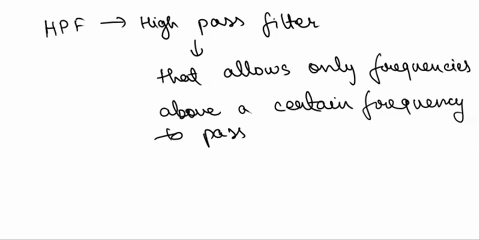 HPF → High pass filter
↓
that allows only frequencies
above a certain frequency
to pass